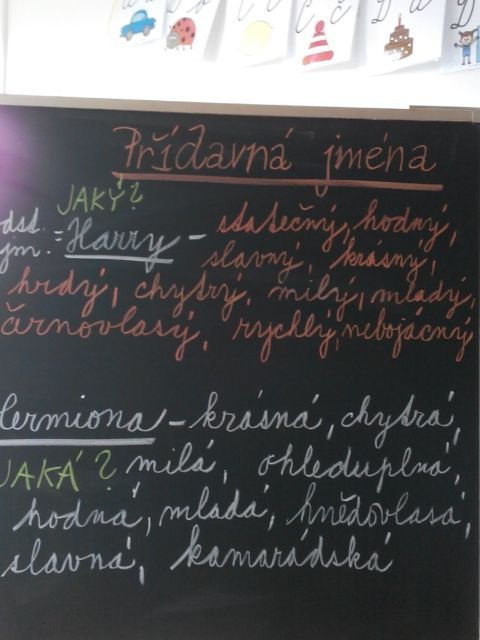 Přídavná jména
JAKÝ?
podst.
jm. = Harry - statečný, hodný,
slavný, krásný,
hrdý, chytrý, milý, mladý,
černovlasý, rychlý, nebojácný
Hermiona - krásná, chytrá,
JAKÁ? milá, ohleduplná,
hodná, mladá, hnědovlasá,
slavná, kamarádská